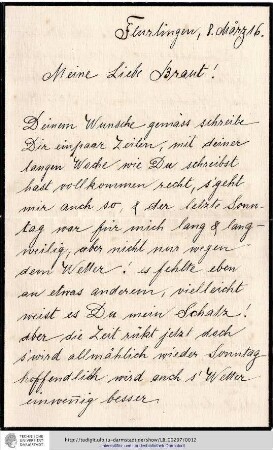 Flurlingen, 8. März 16.
Meine Liebe Braut!
Deinem Wunsche gemäss schreibe
Dir ein paar Zeilen, mit deiner
langen Woche wie Du schreibst
hast vollkommen recht, s'geht
mir auch so & der letzte Sonn-
tag war für mich lang & lang-
weilig, aber nicht nur wegen
dem Wetter! es fehlte eben
an etwas anderem, vielleicht
weist es Du mein Schatz!
aber die Zeit rückt jetzt doch
s'wird allmählich wieder Sonntag
hoffendlich wird auch s'Wetter
einwenig besser.
TECHNISCHE
UNIVERSITÄT
DARMSTADT